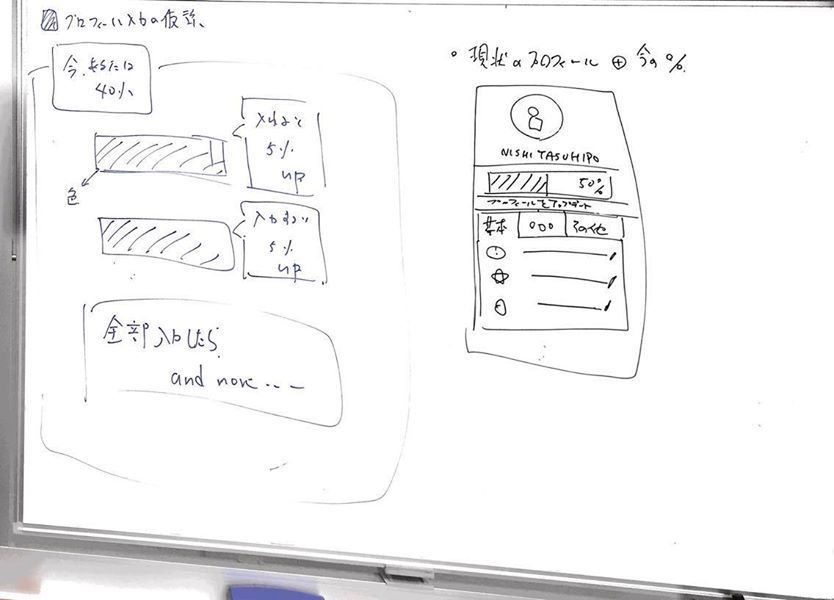 プロフィール入力の仮説、
今、あなたは
40%
入力すると
5%
up
色
入力すると
5%
up
全部入力したら、
and more...
• 現状のプロフィール ⊕ 今の%
NISHI YASUHIRO
50%
プロフィールをアップデート
基本 ○○○ その他